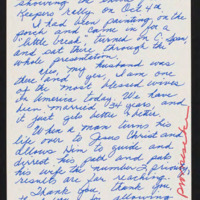 showing the
Keepers rally on Oct 4th
I had been painting, on the
porch and came in for a
"little break" turned on C-Span
and sat there through the
whole presentation.
Yes, my husband was
there and yes, I am one
of the most blessed wives
in America today. We have
been married 34 years, and
it just gets better & better.
When a man turns his
life over to Jesus Christ and
allows Him to guide and
direct his path and put
his wife the number
results are far reaching.
Thank you, thank you
for allowing